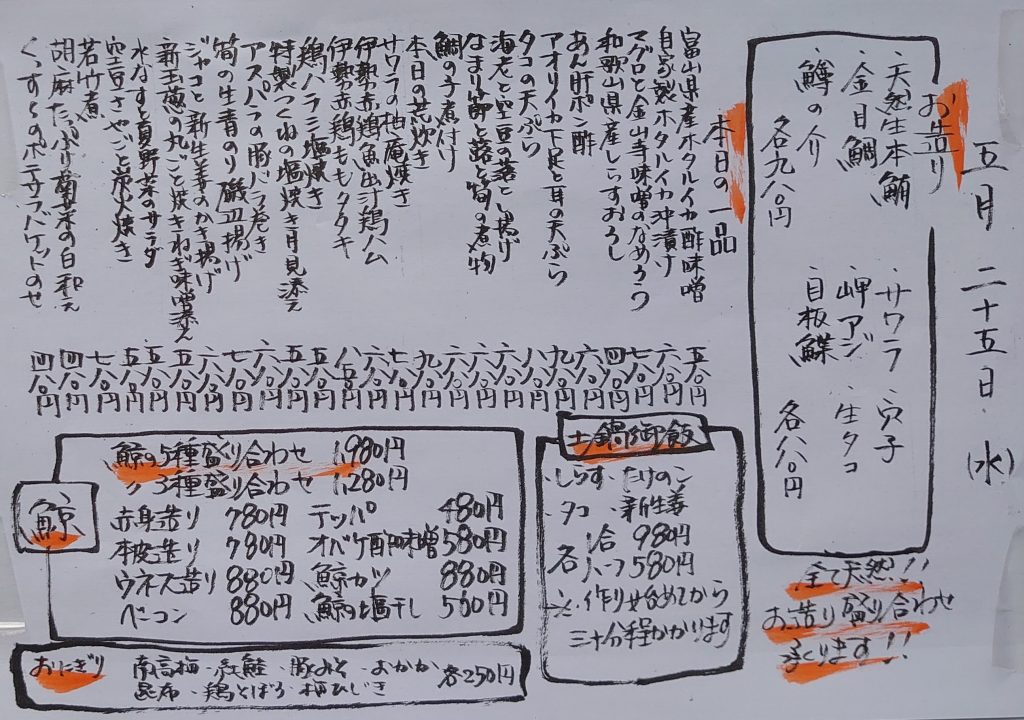 五月 二十五日 (水)
お造り
天然生本鮪 サワラ 穴子
金目鯛 岬アジ 生タコ
鱒の介 目板鰈
各九八〇円 各八八〇円
全て天然!!
お造り盛り合わせ
承ります!!
本日の一品
富山県産ホタルイカ酢味噌 五八〇円
自家製ホタルイカ沖漬け 六八〇円
マグロと金山寺味噌のなめろう 七八〇円
和歌山県産しらすおろし 四八〇円
あん肝ポン酢 六八〇円
アオリイカ下足と耳の天ぷら 九八〇円
タコの天ぷら 八八〇円
海老と空豆の落とし揚げ 六八〇円
なまり節と蕗と筍の煮物 六八〇円
鯛の子煮付け 六八〇円
本日の荒炊き 九八〇円
サワラの柚庵焼き 七八〇円
伊勢赤鶏魚出汁鶏ハム 六八〇円
伊勢赤鶏ももタタキ 八八〇円
鶏ハラミ塩焼き 五八〇円
特製つくねの塩焼き月見添え 五八〇円
アスパラの豚バラ巻き 六八〇円
筍の生青のり磯辺揚げ 七八〇円
ジャコと新生姜のかき揚げ 六八〇円
新玉葱の丸ごと焼きねぎ味噌添え 五八〇円
水なすと夏野菜のサラダ 五八〇円
空豆さやごと炭火焼き 五八〇円
若竹煮 七八〇円
胡麻たっぷり菊菜の白和え 四八〇円
くんすもののポテサラバケットのせ 四八〇円
土鍋御飯
・しらす・たけのこ
・タコ ・新生姜
各 一合 980円
ハーフ580円
※作り始めてから
三十分程かかります
鯨
鯨の5種盛り合わせ 1,980円
〃3種盛り合わせ 1,280円
赤身造り 780円 テッパ 480円
本皮造り 780円 オバケ酢味噌 580円
ウネス造り 880円 鯨カツ 880円
ベーコン 880円 鯨の塩干し 500円
おにぎり
南高梅・紅鮭・豚みそ・おかか
昆布・鶏そぼろ・梅ひじき 各250円